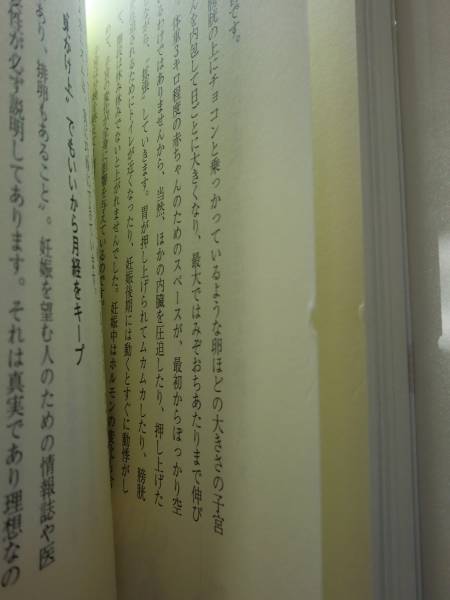 です。
膀胱の上にチョコンと乗っかっているような卵ほどの大きさの子宮
んを内包して日ごとに大きくなり、最大ではみぞおちあたりまで伸び
体重3キロ程度の赤ちゃんのためのスペースが、最初からぽっかり空
わけではありませんから、当然、ほかの内臓を圧迫したり、押し上げた
がら、“拡張”していきます。胃が押し上げられてムカムカしたり、膀胱
されるためにトイレが近くなったり、妊娠後期には動くとすぐに動悸がし
、階段は休み休みでないと上がれませんでした。妊娠中はホルモンの
に影響を与えているのです。
でもいいから月経をキープ
あり、排卵もあること”。妊娠を望む人のための情報誌や医
必ず説明してあります。それは真実であり理想なの